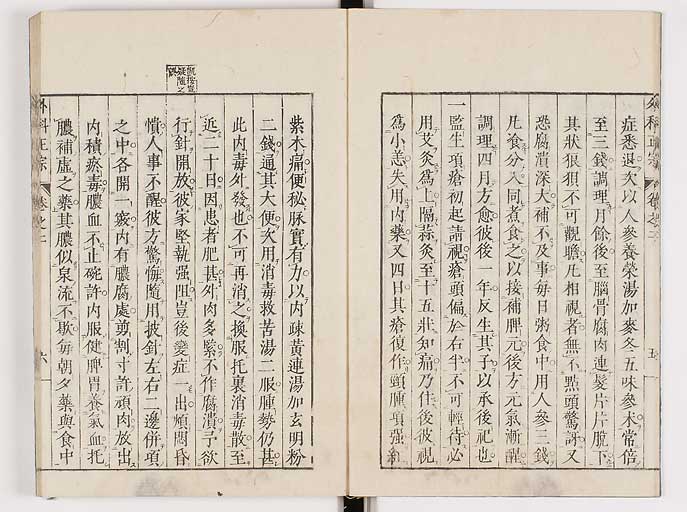 症悉退次以人參養榮湯加麥冬五味參朮常倍
至三錢調理月餘後至腦骨腐肉連髮片片脫下
其狀狼狽不可觀瞻凢相視者無不點頭驚訝又
恐腐潰深大補不及事每日粥食中用人參三錢
凢食分入同煮食之以接補脾元後方元氣漸醒
調理四月方愈彼後一年反生其子以承後祀也
一監生項瘡初起請視瘡頭偏於右半不可輕待必
用艾灸爲上隔蒜灸至十五壯知痛乃住後彼視
爲小恙失用內藥又四日其瘡復作頭腫項强紅
紫木痛便秘脉實有力以內疎黃連湯加玄明粉
二錢通其大便次用消毒救苦湯二服腫勢仍甚
此內毒外發也不可再消之換服托裏消毒散至
近二十日因患者肥甚外肉多緊不作腐潰予欲
行針開放彼家堅執强阻豈後變症一出煩悶昏
憒人事不醒彼方驚悔隨用披針左右二邊併項
之中各開一竅內有膿腐處剪割寸許頑肉放出
內積瘀毒膿血不止碗許內服健脾胃養氣血托
膿補虛之藥其膿似泉流不歇每朝夕藥與食中
外科正宗
卷之二
六
外科正宗
卷之二